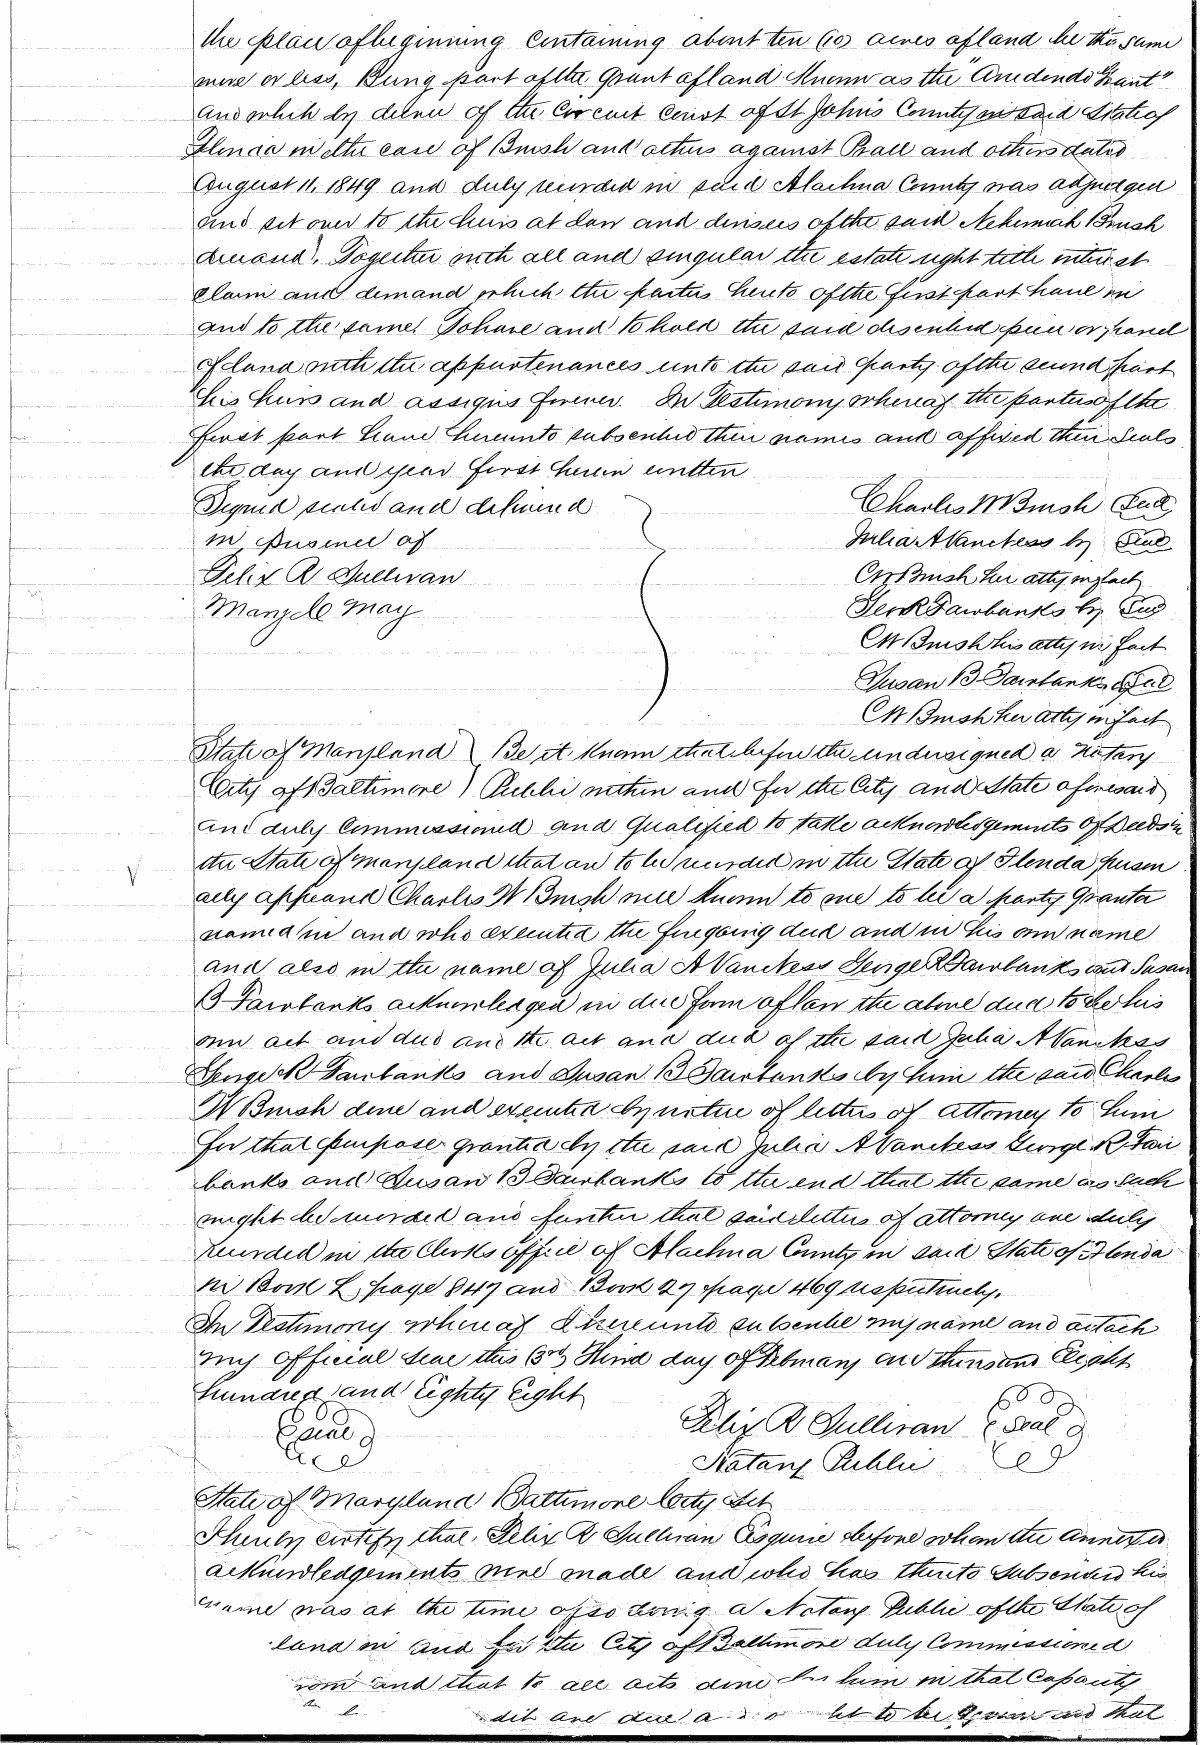 the place of beginning Containing about ten (10) acres of land be the same
more or less, Being part of the Grant of land Known as the "Arredondo Grant"
and which by decree of the Circuit Court of St Johns County in said State of
Florida in the case of Brush and others against Ball and others dated
August 11, 1849 and duly recorded in said Alachua County was adjudged
and set over to the heirs at law and devisees of the said Nehemiah Brush
deceased. Together with all and singular the estate right title interest
Claim and demand which the parties hereto of the first part have in
and to the same! To have and to hold the said described piece or parcel
of land with the appurtenances unto the said party of the second part
his heirs and assigns forever. In Testimony whereof the parties of the
first part have hereunto subscribed their names and affixed their Seals
the day and year first herein written
Signed sealed and delivered
in presence of
Felix R Sullivan
May
Charles W Brush Seal
Julia A Van Ness by Seal
CW Brush her atty in fact
Geo R Fairbanks by Seal
CW Brush his atty in fact
Susan B Fairbanks Seal
CW Brush her atty in fact
State of Maryland ) Be it Known that before the undersigned a Notary
City of Baltimore ) Public within and for the City and State aforesaid
and duly Commissioned and Qualified to take acknowledgements of Deeds in
the State of Maryland that are to be recorded in the State of Florida person
ally appeared Charles W Brush well Known to me to be a party Grantor
named in and who executed the foregoing deed and in his own name
and also in the name of Julia A Van Ness George R Fairbanks and Susan
B Fairbanks acknowledged in due form of law the above deed to be his
own act and deed and the act and deed of the said Julia A Van Ness
George R Fairbanks and Susan B Fairbanks by him the said Charles
W Brush done and executed by virtue of letters of Attorney to him
for that purpose granted by the said Julia A Van Ness George R Fair
banks and Susan B Fairbanks to the end that the same as such
might be recorded and further that said letters of attorney are duly
recorded in the Clerks office of Alachua County in said State of Florida
in Book L page 847 and Book 27 page 469 respectively.
In Testimony whereof I hereunto subscribe my name and attach
my official seal this (3rd) Third day of February one thousand Eight
hundred and Eighty Eight
Seal
Felix R Sullivan Seal
Notary Public
State of Maryland Baltimore City Sct
I hereby certify that Felix R Sullivan Esquire before whom the annexed
acknowledgements were made and who has thereto Subscribed his
name was at the time of so doing a Notary Public of the State of
land in and for the City of Baltimore duly Commissioned
and that to all acts done by him in that Capacity
dit are due a to be Given and that